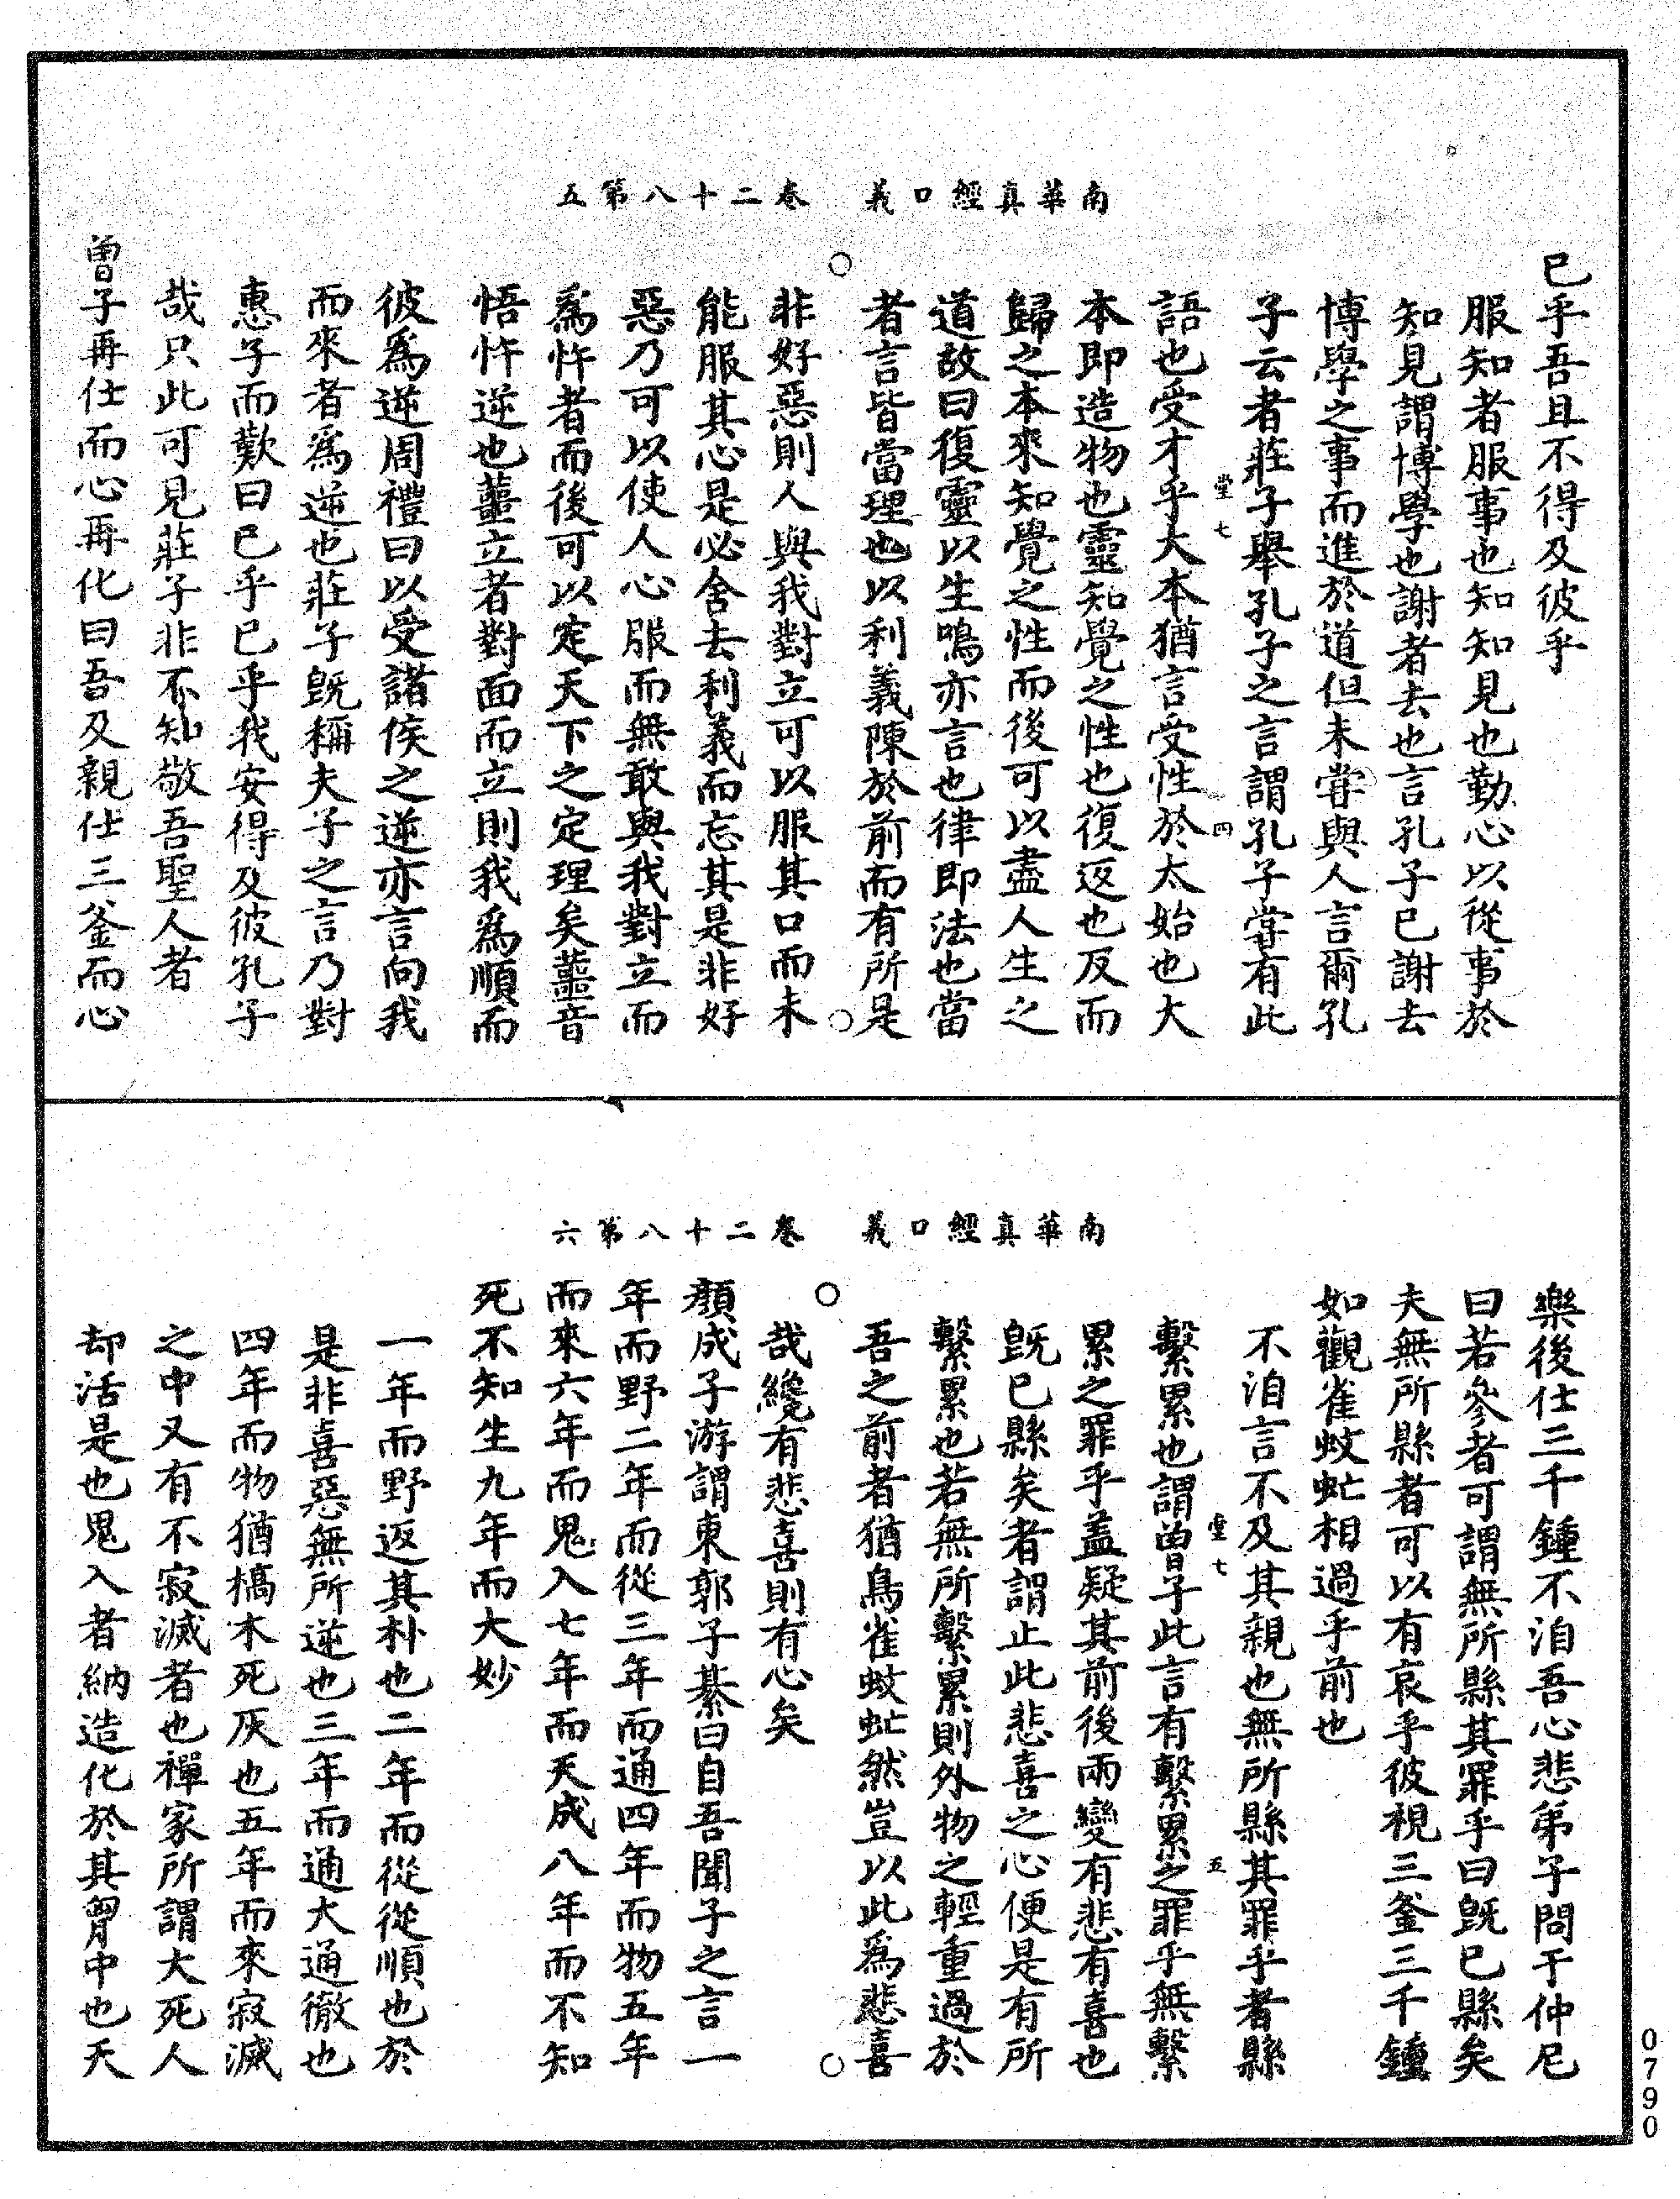 南華真經口義　卷二十八第五
已乎吾且不得及彼乎
服知者服事也知知見也勤心以從事於
知見謂博學也謝者去也言孔子已謝去
博學之事而進於道但未甞與人言爾孔
子云者莊子舉孔子之言謂孔子甞有此
堂七　四
語也受才乎大本猶言受性於太始也大
本即造物也靈知覺之性也復返也反而
歸之本來知覺之性而後可以盡人生之
道故曰復靈以生鳴亦言也律即法也當
者言皆當理也以利義陳於前而有所是
非好惡則人與我對立可以服其口而未
能服其心是必舍去利義而忘其是非好
惡乃可以使人心服而無敢與我對立而
為忤者而後可以定天下之定理矣蘁音
悟忤逆也蘁立者對面而立則我為順而
彼為逆周禮曰以受諸侯之逆亦言向我
而來者為逆也莊子既稱夫子之言乃對
惠子而歎曰已乎已乎我安得及彼孔子
哉只此可見莊子非不知敬吾聖人者
曾子再仕而心再化曰吾及親仕三釜而心
南華真經口義　卷二十八第六
樂後仕三千鍾不洎吾心悲弟子問于仲尼
曰若參者可謂無所縣其罪乎曰既已縣矣
夫無所縣者可以有哀乎彼視三釜三千鍾
如觀雀蚊虻相過乎前也
不洎言不及其親也無所縣其罪乎者縣
堂七　五
繫累也謂曾子此言有繫累之罪乎無繫
累之罪乎盖疑其前後兩變有悲有喜也
既已縣矣者謂止此悲喜之心便是有所
繫累也若無所繫累則外物之輕重過於
吾之前者猶鳥雀蚊虻然豈以此為悲喜
哉纔有悲喜則有心矣
顏成子游謂東郭子綦曰自吾聞子之言一
年而野二年而從三年而通四年而物五年
而來六年而鬼入七年而天成八年而不知
死不知生九年而大妙
一年而野返其朴也二年而從從順也於
是非喜惡無所逆也三年而通大通徹也
四年而物猶槁木死灰也五年而來寂滅
之中又有不寂滅者也禪家所謂大死人
却活是也鬼入者納造化於其胷中也天
0790